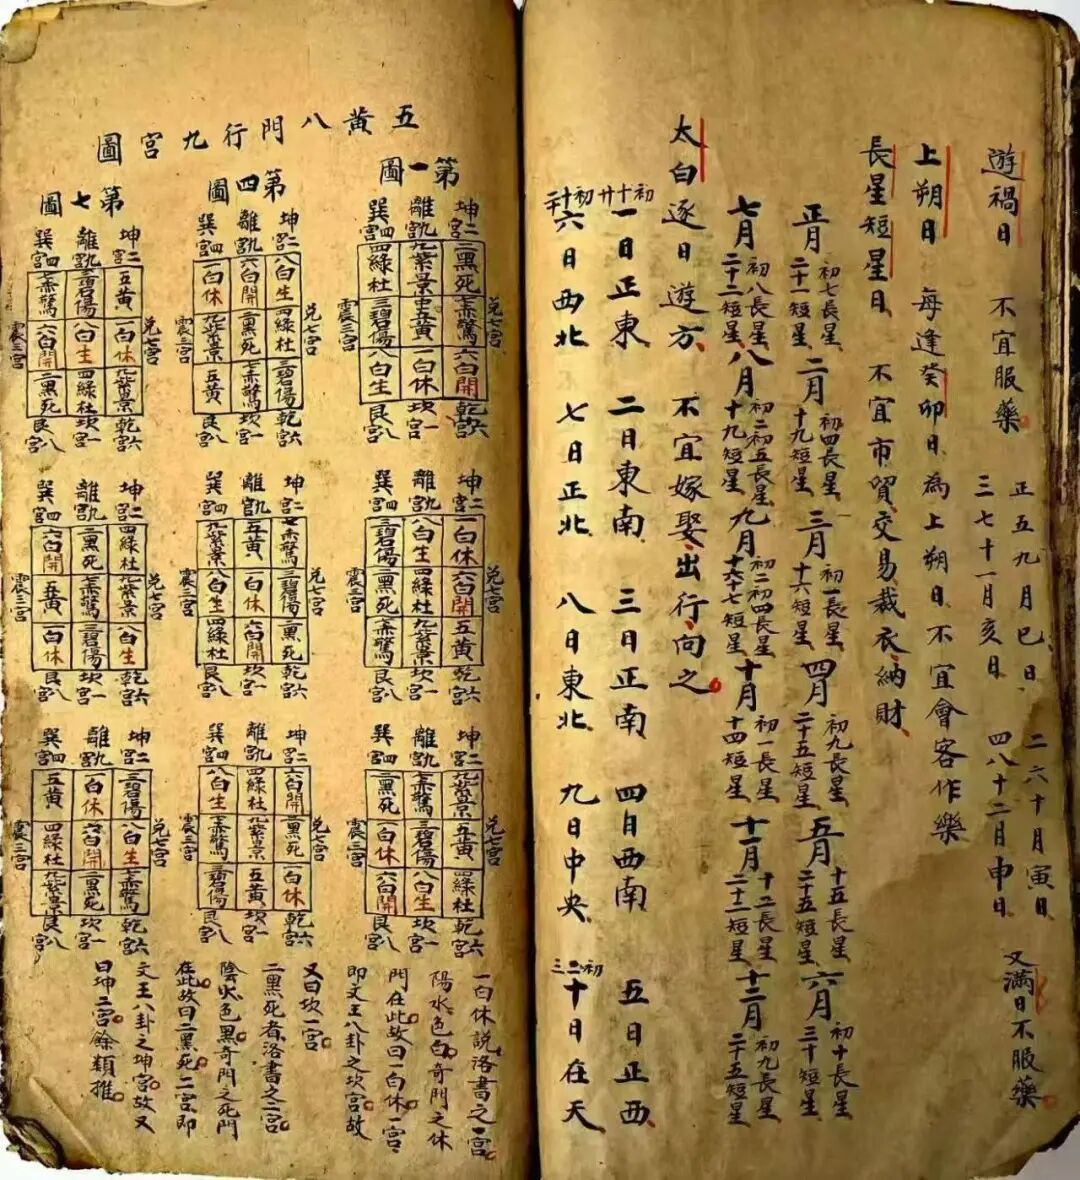 遊禍日 不宜服藥 正五九月巳日 二六十月寅日 三七十一月亥日 四八十二月申日 又滿日不服藥
上朔日 每逢癸卯日為上朔日不宜會客作樂
長星短星日 不宜市貿交易裁衣納財
正月 初七長星 二十一短星 二月 初四長星 十九短星 三月 初一長星 十六短星 四月 初九長星 二十五短星 五月 十五長星 二十五短星 六月 初十長星 三十短星
七月 初八長星 二十二短星 八月 初二五長星 十九短星 九月 初二四長星 十六七短星 十月 初一長星 十四短星 十一月 十二長星 二十二短星 十二月 初九長星 二十五短星
太白逐日遊方 不宜嫁娶出行向之
初十廿一日正東 二日東南 三日正南 四日西南 五日正西
初十二六日西北 七日正北 八日東北 九日中央 初二三十日在天
五黄八門行九宮圖
第一圖
兌七宮
坤二宮 二黑死 七赤驚 六白開 乾六宮
離九宮 九紫景 中五黄 一白休 坎一宮
巽四宮 四綠杜 三碧傷 八白生 艮八宮
震三宮
兌七宮
坤二宮 一白休 六白開 五黄 乾六宮
離九宮 八白生 四綠杜 九紫景 坎一宮
巽四宮 三碧傷 二黑死 七赤驚 艮八宮
震三宮
兌七宮
坤二宮 九紫景 五黄 四綠杜 乾六宮
離九宮 七赤驚 三碧傷 八白生 坎一宮
巽四宮 二黑死 一白休 六白開 艮八宮
震三宮
第四圖
兌七宮
坤二宮 八白生 四綠杜 三碧傷 乾六宮
離九宮 六白開 二黑死 七赤驚 坎一宮
巽四宮 一白休 九紫景 五黄 艮八宮
震三宮
兌七宮
坤二宮 七赤驚 三碧傷 二黑死 乾六宮
離九宮 五黄 一白休 六白開 坎一宮
巽四宮 九紫景 八白生 四綠杜 艮八宮
震三宮
兌七宮
坤二宮 六白開 二黑死 一白休 乾六宮
離九宮 四綠杜 九紫景 五黄 坎一宮
巽四宮 八白生 七赤驚 三碧傷 艮八宮
震三宮
第七圖
兌七宮
坤二宮 五黄 一白休 九紫景 乾六宮
離九宮 三碧傷 八白生 四綠杜 坎一宮
巽四宮 七赤驚 六白開 二黑死 艮八宮
震三宮
兌七宮
坤二宮 四綠杜 九紫景 八白生 乾六宮
離九宮 二黑死 七赤驚 三碧傷 坎一宮
巽四宮 六白開 五黄 一白休 艮八宮
震三宮
兌七宮
坤二宮 三碧傷 八白生 七赤驚 乾六宮
離九宮 一白休 六白開 二黑死 坎一宮
巽四宮 五黄 四綠杜 九紫景 艮八宮
震三宮
一白休說洛書之一宮
陽水色白奇門之休
門在此故曰一白休一宮
即文王八卦之坎宮故
又曰坎一宮
二黑死者洛書之二宮
陰火色黑奇門之死門
在此故曰二黑死二宮即
文王八卦之坤宮故又
曰坤二宮餘類推